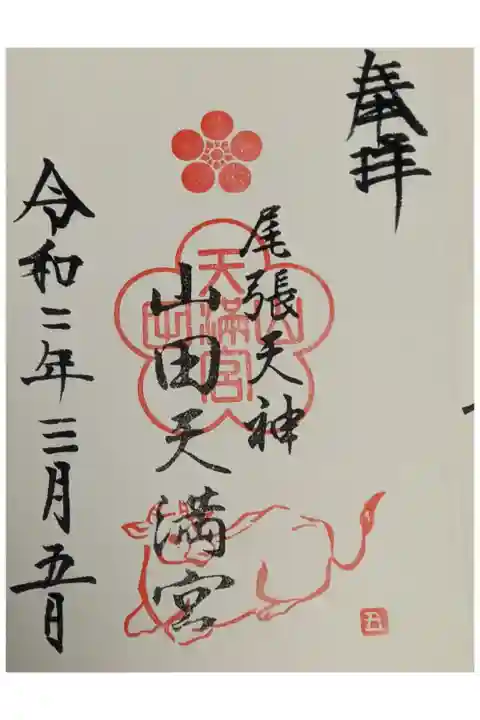 奉拝
尾張天神
山田天満宮
令和二年三月五日
山田
天満宮
丑